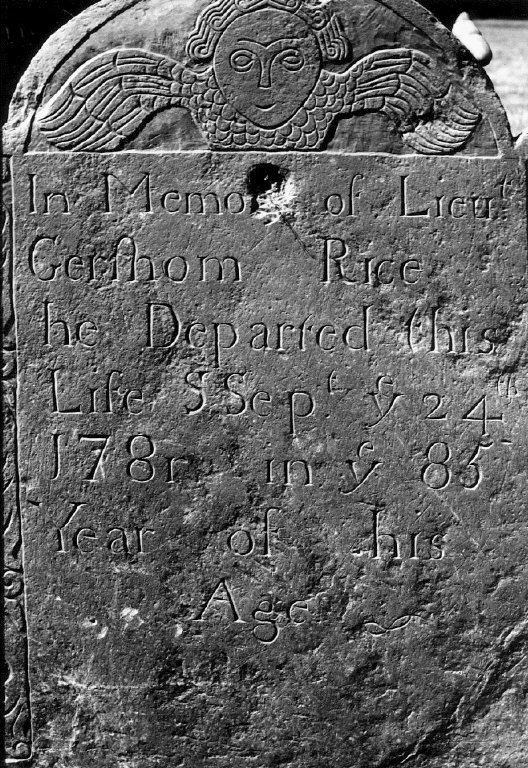 In Memory of Lieuᵗ
Gerſhom Rice
he Departed this
Life SSepᵗ yᵉ 24ᵗʰ
1781 in yᵉ 85
Year of his
Age